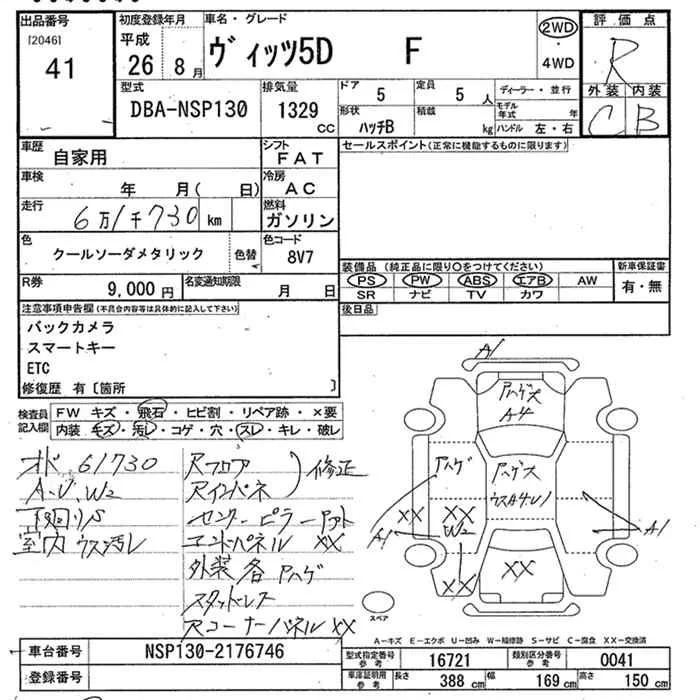 出品番号
[2046]
41
初度登録年月
平成
26 8月
車名・グレード
ヴィッツ5D F
2WD
・
4WD
評価点
R
外装 内装
C B
型式
DBA-NSP130
排気量
1329
CC
ドア
5
定員
5 人
形状
ハッチB
積載
kg
ディーラー・並行
モデル年式 年
ハンドル 左・右
車歴
自家用
シフト
FAT
車検
年 月( 日)
冷房
AC
走行
6万1千730 km
燃料
ガソリン
色
クールソーダメタリック
色替
色コード
8V7
R券
9,000 円
名変通知期限
月 日
セールスポイント(正常に機能するものに限ります)
装備品 (純正品に限り○をつけてください)
PS PW ABS エアB AW
SR ナビ TV カワ
新車保証書
有・無
後日品
注意事項申告欄(不具合内容等は具体的に記入して下さい)
バックカメラ
スマートキー
ETC
修復歴 有〔箇所 〕
検査員
記入欄
FW キズ・飛石・ヒビ割・リペア跡・×要
内装 キズ・汚レ・コゲ・穴・スレ・キレ・破レ
オド 61730
A.U.W2
下回りS
室内 ウス汚レ
Rフロア
Rインパネ
修正
センターピラーアウト
エンドパネル XX
外装各アハゲ
スタッドレス
RコーナーパネルXX
A1
アハゲス
A4
アハゲ
アハゲス
ウスA4.U1
XX
XX
W2
A1
A1
XX
XX
スペア
A-キズ E-エクボ U-凹み W-補修跡 S-サビ C-腐食 XX-交換済
車台番号
NSP130-2176746
登録番号
型式指定番号
参考
16721
類別区分番号
参考
0041
車庫証明用
参考
長さ 388 cm
幅 169 cm
高さ 150 cm